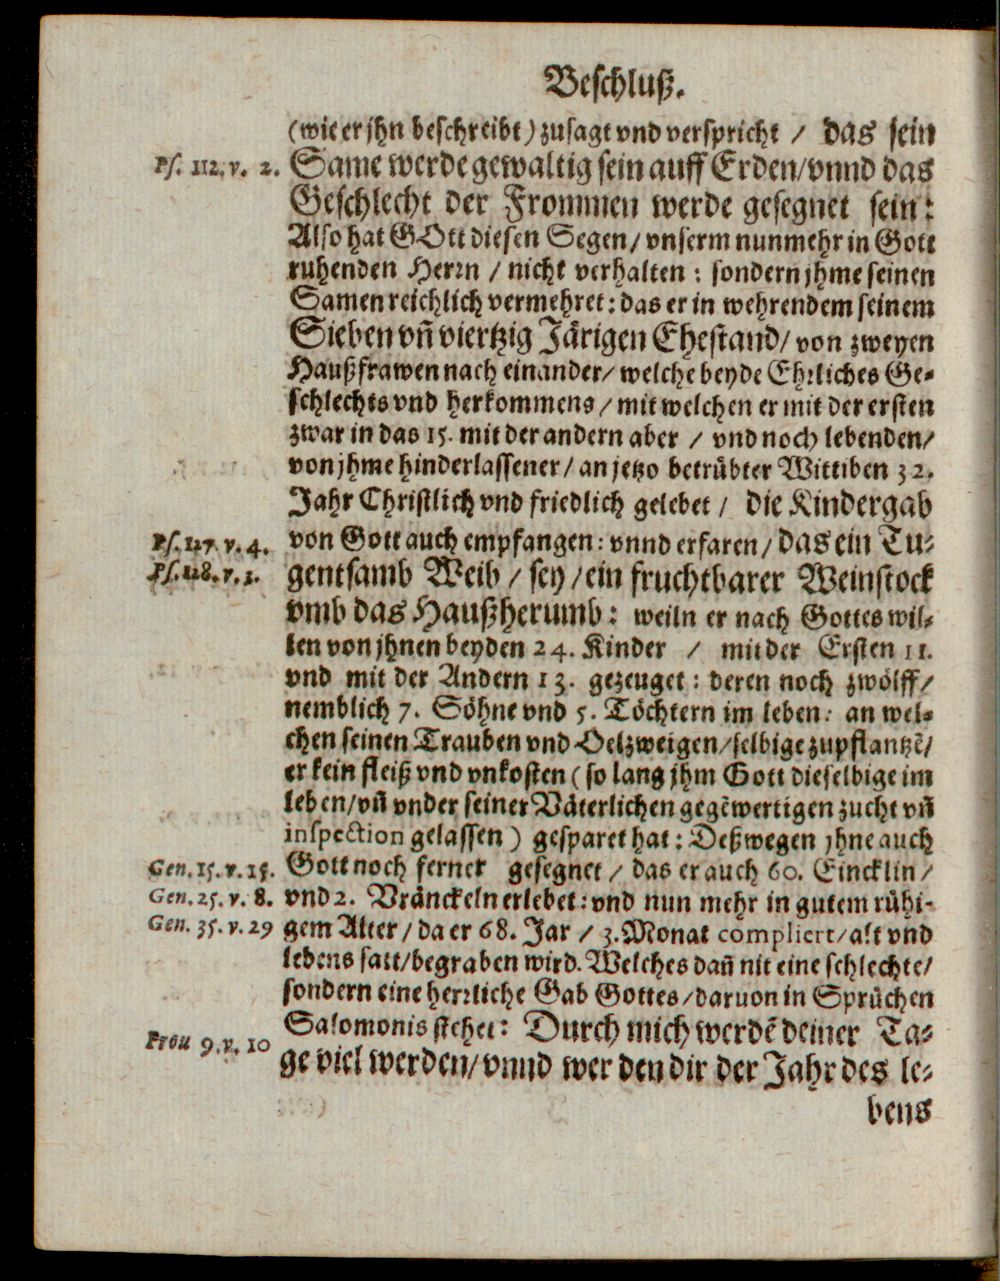 Beschluß.
(wie er jhn beschreibt) zusagt vnd verspricht / das sein
Ps. 112. v. 2. Same werde gewaltig sein auff Erden / vnnd das
Geschlecht der Frommen werde gesegnet sein:
Also hat GOtt diesen Segen / vnserm nunmehr in Gott
ruhenden Herrn / nicht verhalten: sondern jhme seinen
Samen reichlich vermehret: das er in wehrendem seinem
Sieben vñ viertzig Jårigen Ehestand / von zweyen
Haußfrawen nach einander / welche beyde Ehrliches Ge-
schlechts vnd herkommens / mit welchen er mit der ersten
zwar in das 15. mit der andern aber / vnd noch lebenden /
von jhme hinderlassener / an jetzo betrůbter Wittiben 32.
Jahr Christlich vnd friedlich gelebet / die Kindergab
Ps. 127. v. 4. von Gott auch empfangen: vnnd erfaren / das ein Tu-
Ps. 128. v. 3. gentsamb Weib / sey / ein fruchtbarer Weinstock
vmb das Haußherumb: weiln er nach Gottes wil-
len von jhnen beyden 24. Kinder / mit der Ersten 11.
vnd mit der Andern 13. gezeuget: deren noch zwölff /
nemblich 7. Söhne vnd 5. Töchtern im leben: an wel-
chen seinen Trauben vnd Oelzweigen / selbige zupflantzẽ /
er kein fleiß vnd vnkosten (so lang jhm Gott dieselbige im
leben / vñ vnder seiner Våterlichen gegẽwertigen zucht vñ
inspection gelassen) gesparet hat: Deßwegen jhne auch
Gen. 15. v. 15. Gott noch ferner gesegnet / das er auch 60. Eincklin /
Gen. 25. v. 8. vnd 2. Vränckeln erlebet: vnd nun mehr in gutem růhi-
Gen. 35. v. 29 gem Alter / da er 68. Jar / 3. Monat compliert / alt vnd
lebens satt / begraben wird. Welches dañ nit eine schlechte /
sondern eine herrliche Gab Gottes / daruon in Sprůchen
Salomonis stehet: Durch mich werdẽ deiner Ta-
Prou 9. v. 10 ge viel werden / vnnd wer den dir der Jahr des le-
bens